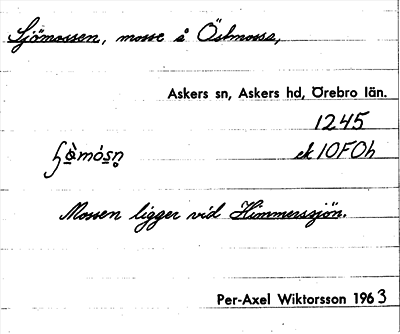 Sjömossen, mosse å Östmossa,
Askers sn, Askers hd, Örebro län.
1245
ek 10F0h
Mossen ligger vid Himmerssjön.
Per-Axel Wiktorsson 1963